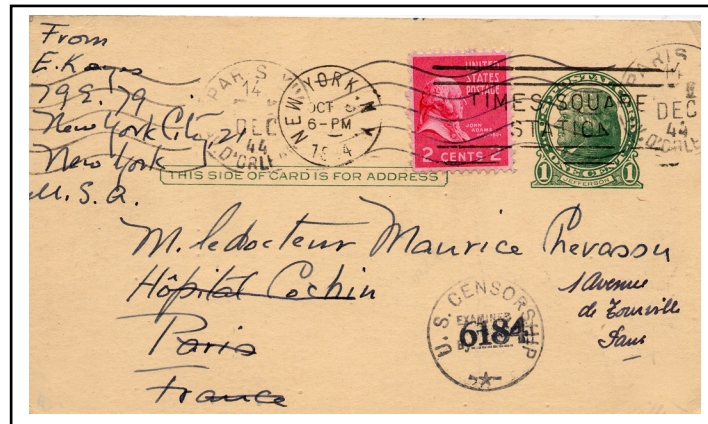 From
E. Kayes
79 E. 79
New York City, 21
New York
U. S. A.
PARIS
14
DEC
44
D'ORLE
NEW YORK, N.Y.
OCT
6-PM
UNITED
STATES
POSTAGE
JOHN
ADAMS
2 CENTS 2
TIMES SQUARE
STATION
PARIS
14
DEC
44
D'ORLE
1 ONE CENT 1
JEFFERSON
THIS SIDE OF CARD IS FOR ADDRESS
M. le docteur Maurice Chevassu
Hôpital Cochin
Paris
France
1 Avenue
de Tourville
Paris
U. S. CENSORSHIP
EXAMINED
By
6184